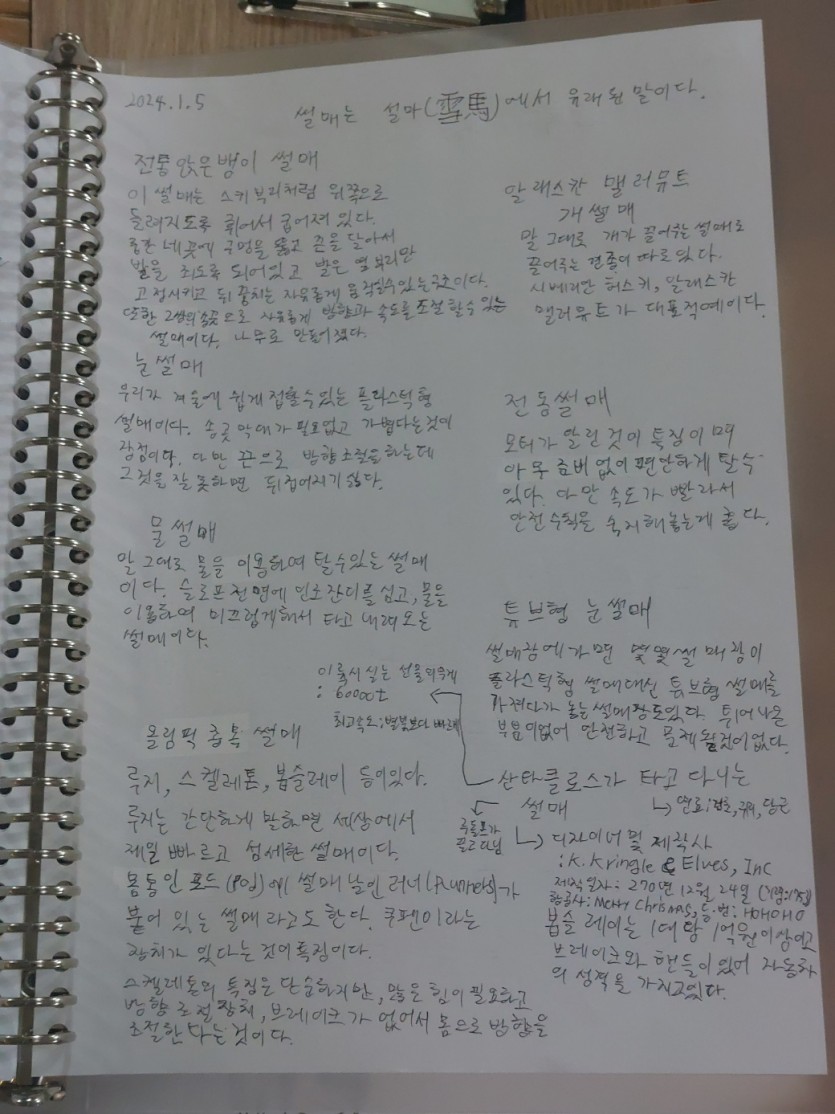 2024.1.5
썰매는 설마(雪馬)에서 유래된 말이다.
전통 앉은뱅이 썰매
이 썰매는 스키부리처럼 위쪽으로
들려지도록 휘어서 굽어져 있다.
중간 네 곳에 구멍을 뚫고 끈을 달아서
발을 죄도록 되어있고 발은 앞부리만
고정시키고 뒤꿈치는 자유롭게 움직일수있는구조이다.
또한 2쌍의 송곳으로 자유롭게 방향과 속도를 조절할수있는
썰매이다. 나무로 만들어졌다.
눈썰매
우리가 겨울에 쉽게 접할수있는 플라스틱형
썰매이다. 송곳 막대가 필요없고 가볍다는것이
장점이다. 다만 끈으로 방향조절을 하는데
그것을 잘못하면 뒤집어지기 쉽다.
물썰매
말 그대로 물을 이용하여 탈수있는 썰매
이다. 슬로프 전면에 인조잔디를 심고, 물을
이용하여 미끄럽게해서 타고 내려오는
썰매이다.
올림픽 종목 썰매
루지, 스켈레톤, 봅슬레이 등이있다.
루지는 간단하게 말하면 세상에서
제일 빠르고 섬세한 썰매이다.
몸통인 포드(Pod)에 썰매 날인 러너(Runners)가
붙어 있는 썰매라고도 한다. 쿠펜이라는
장치가 있다는 것이 특징이다.
스켈레톤의 특징은 단순하지만, 많은 힘이 필요하고
방향 조절 장치, 브레이크가 없어서 몸으로 방향을
조절한다는 것이다.
알래스칸 맬러뮤트
개썰매
말 그대로 개가 끌어주는 썰매로
끌어주는 견종이 따로있다.
시베리안 허스키, 알래스칸
맬러뮤트가 대표적예이다.
전동썰매
모터가 달린 것이 특징이며
아무 준비 없이 편안하게 탈수
있다. 다만 속도가 빨라서
안전수칙을 숙지해놓는게 좋다.
튜브형 눈썰매
썰매장에가면 몇몇 썰매장이
플라스틱형 썰매대신 튜브형 썰매를
가져다가 놓는 썰매장도있다. 튀어나온
부분이없어 안전하고 문제될것이없다.
산타클로스가 타고 다니는
썰매
이륙시 싣는 선물의무게
: 60000t
최고속도: 별빛보다 빠르게
루돌프가
끌고다님
연료: 건초, 귀위, 당근
디자이너 및 제작사
: K. Kringle & Elves, Inc
제작일자: 270년 12월 24일
항공사: Merry Christmas, 등번: HOHOHO
봅슬레이는 1대당 1억원이상이고
브레이크와 핸들이있어 자동차
의 성격을 가지고있다.